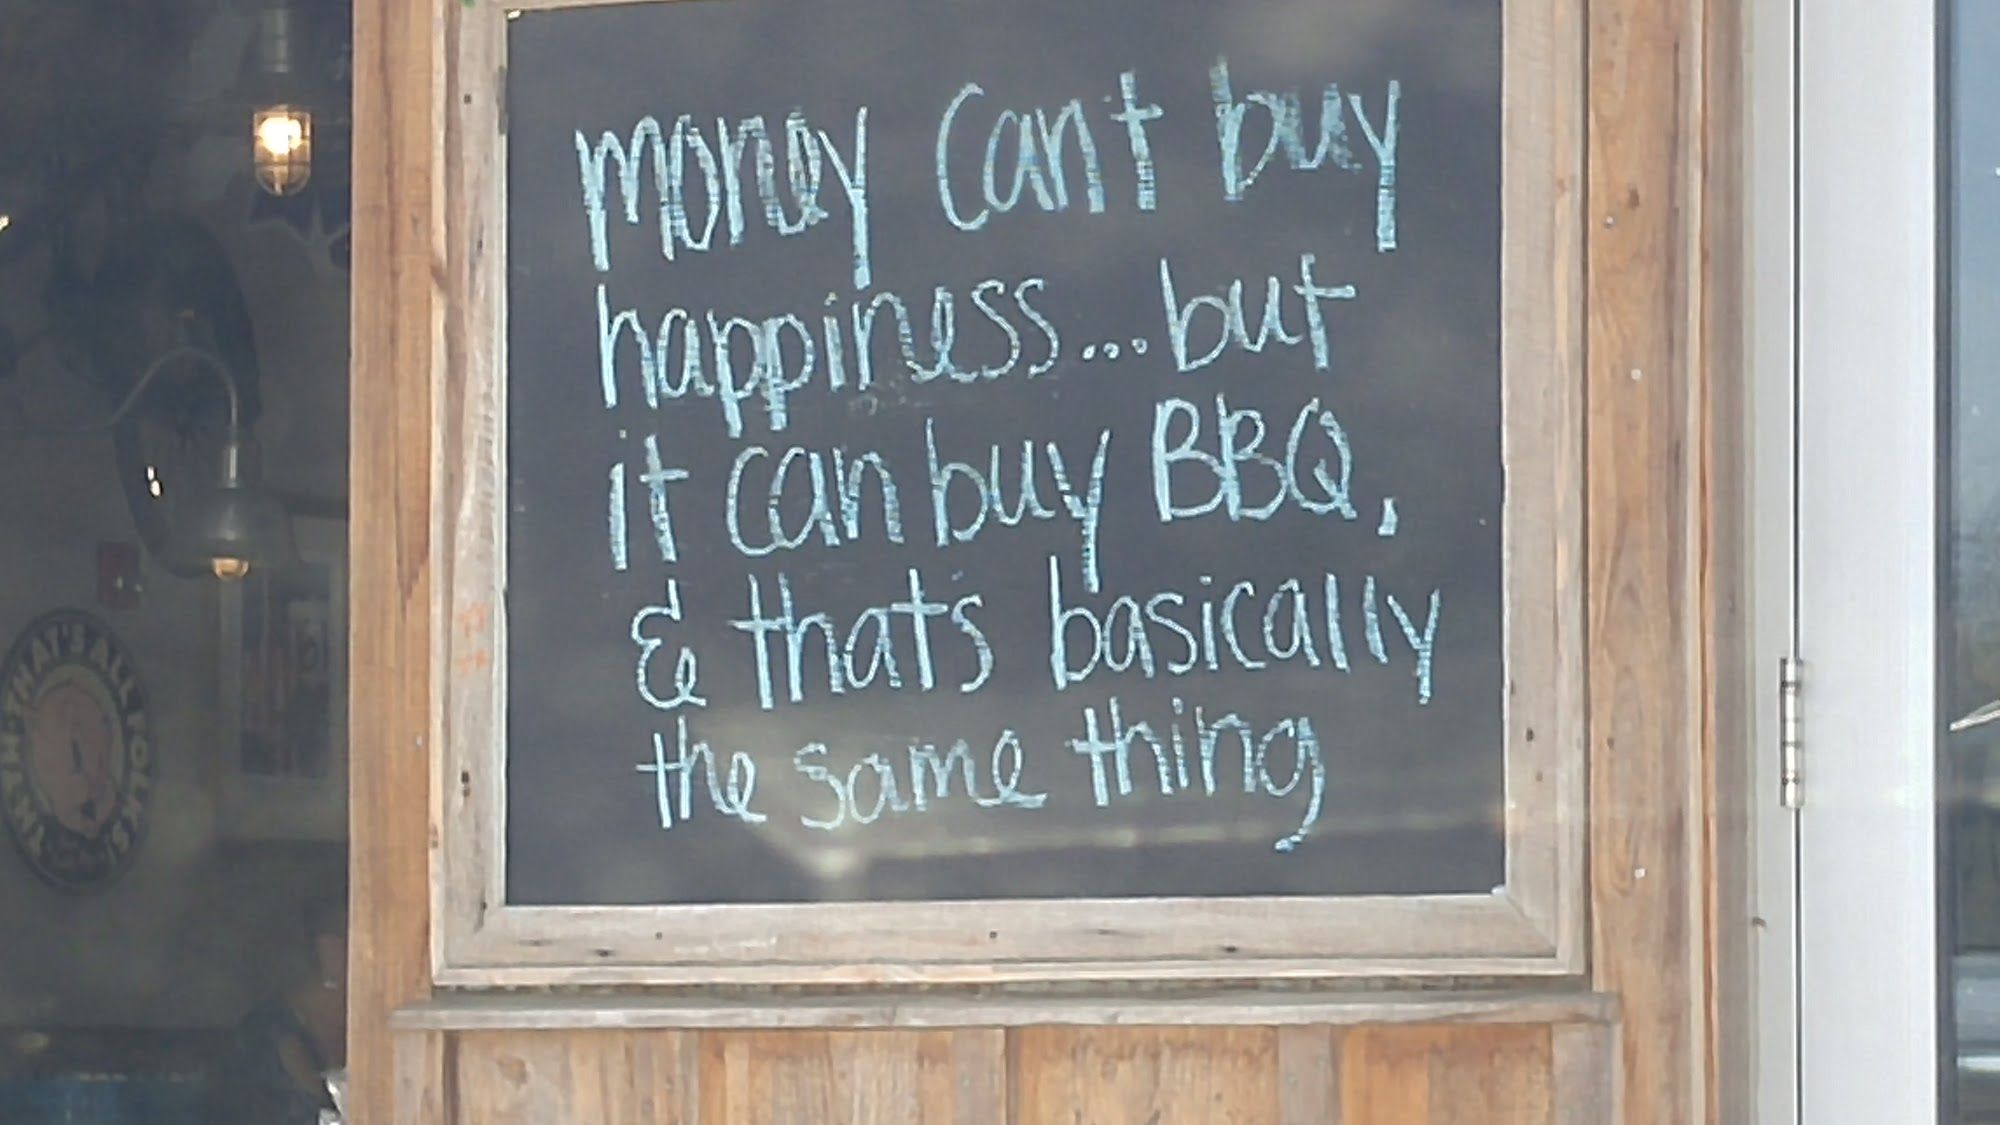 money can't buy
happiness...but
it can buy BBQ,
& that's basically
the same thing
THAT'S ALL FOLKS!